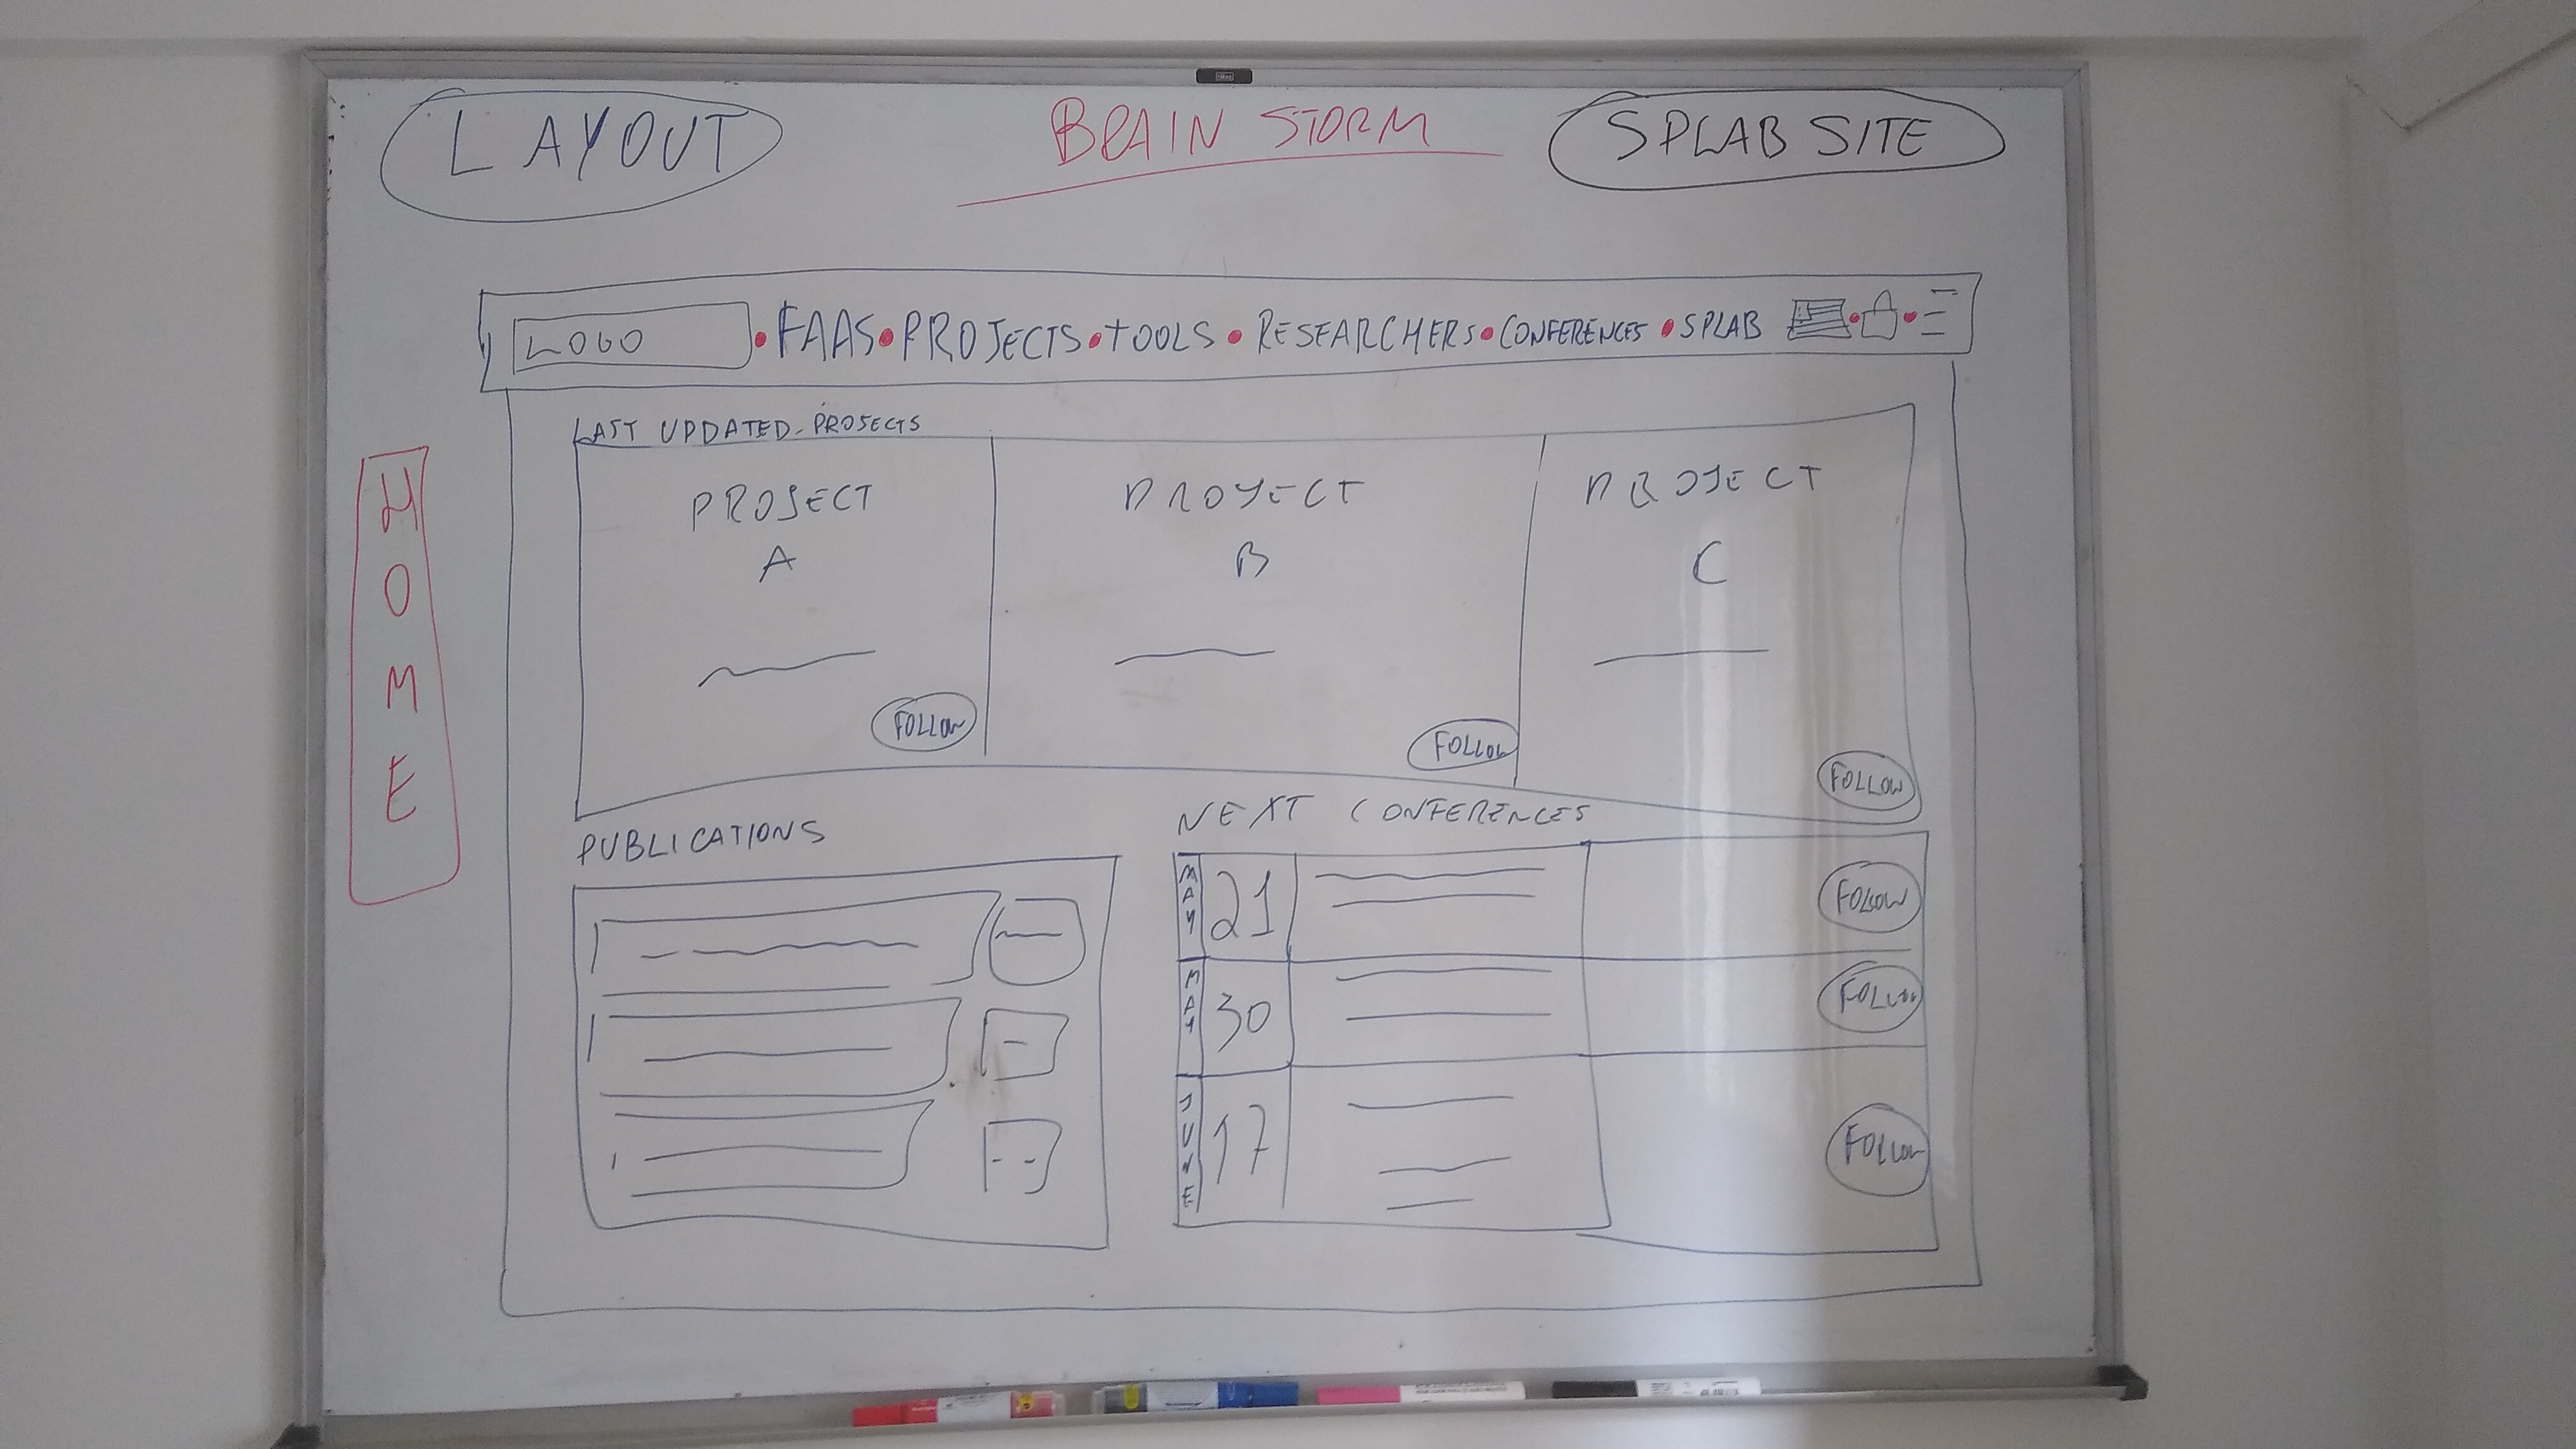 LAYOUT
BRAIN STORM
SPLAB SITE
LOGO • FAAS • PROJECTS • TOOLS • RESEARCHERS • CONFERENCES • SPLAB
HOME
LAST UPDATED PROJECTS
PROJECT A
FOLLOW
PROYECT B
FOLLOW
PROJECT C
FOLLOW
PUBLICATIONS
NEXT CONFERENCES
MAY 21 FOLLOW
MAY 30 FOLLOW
JUNE 17 FOLLOW